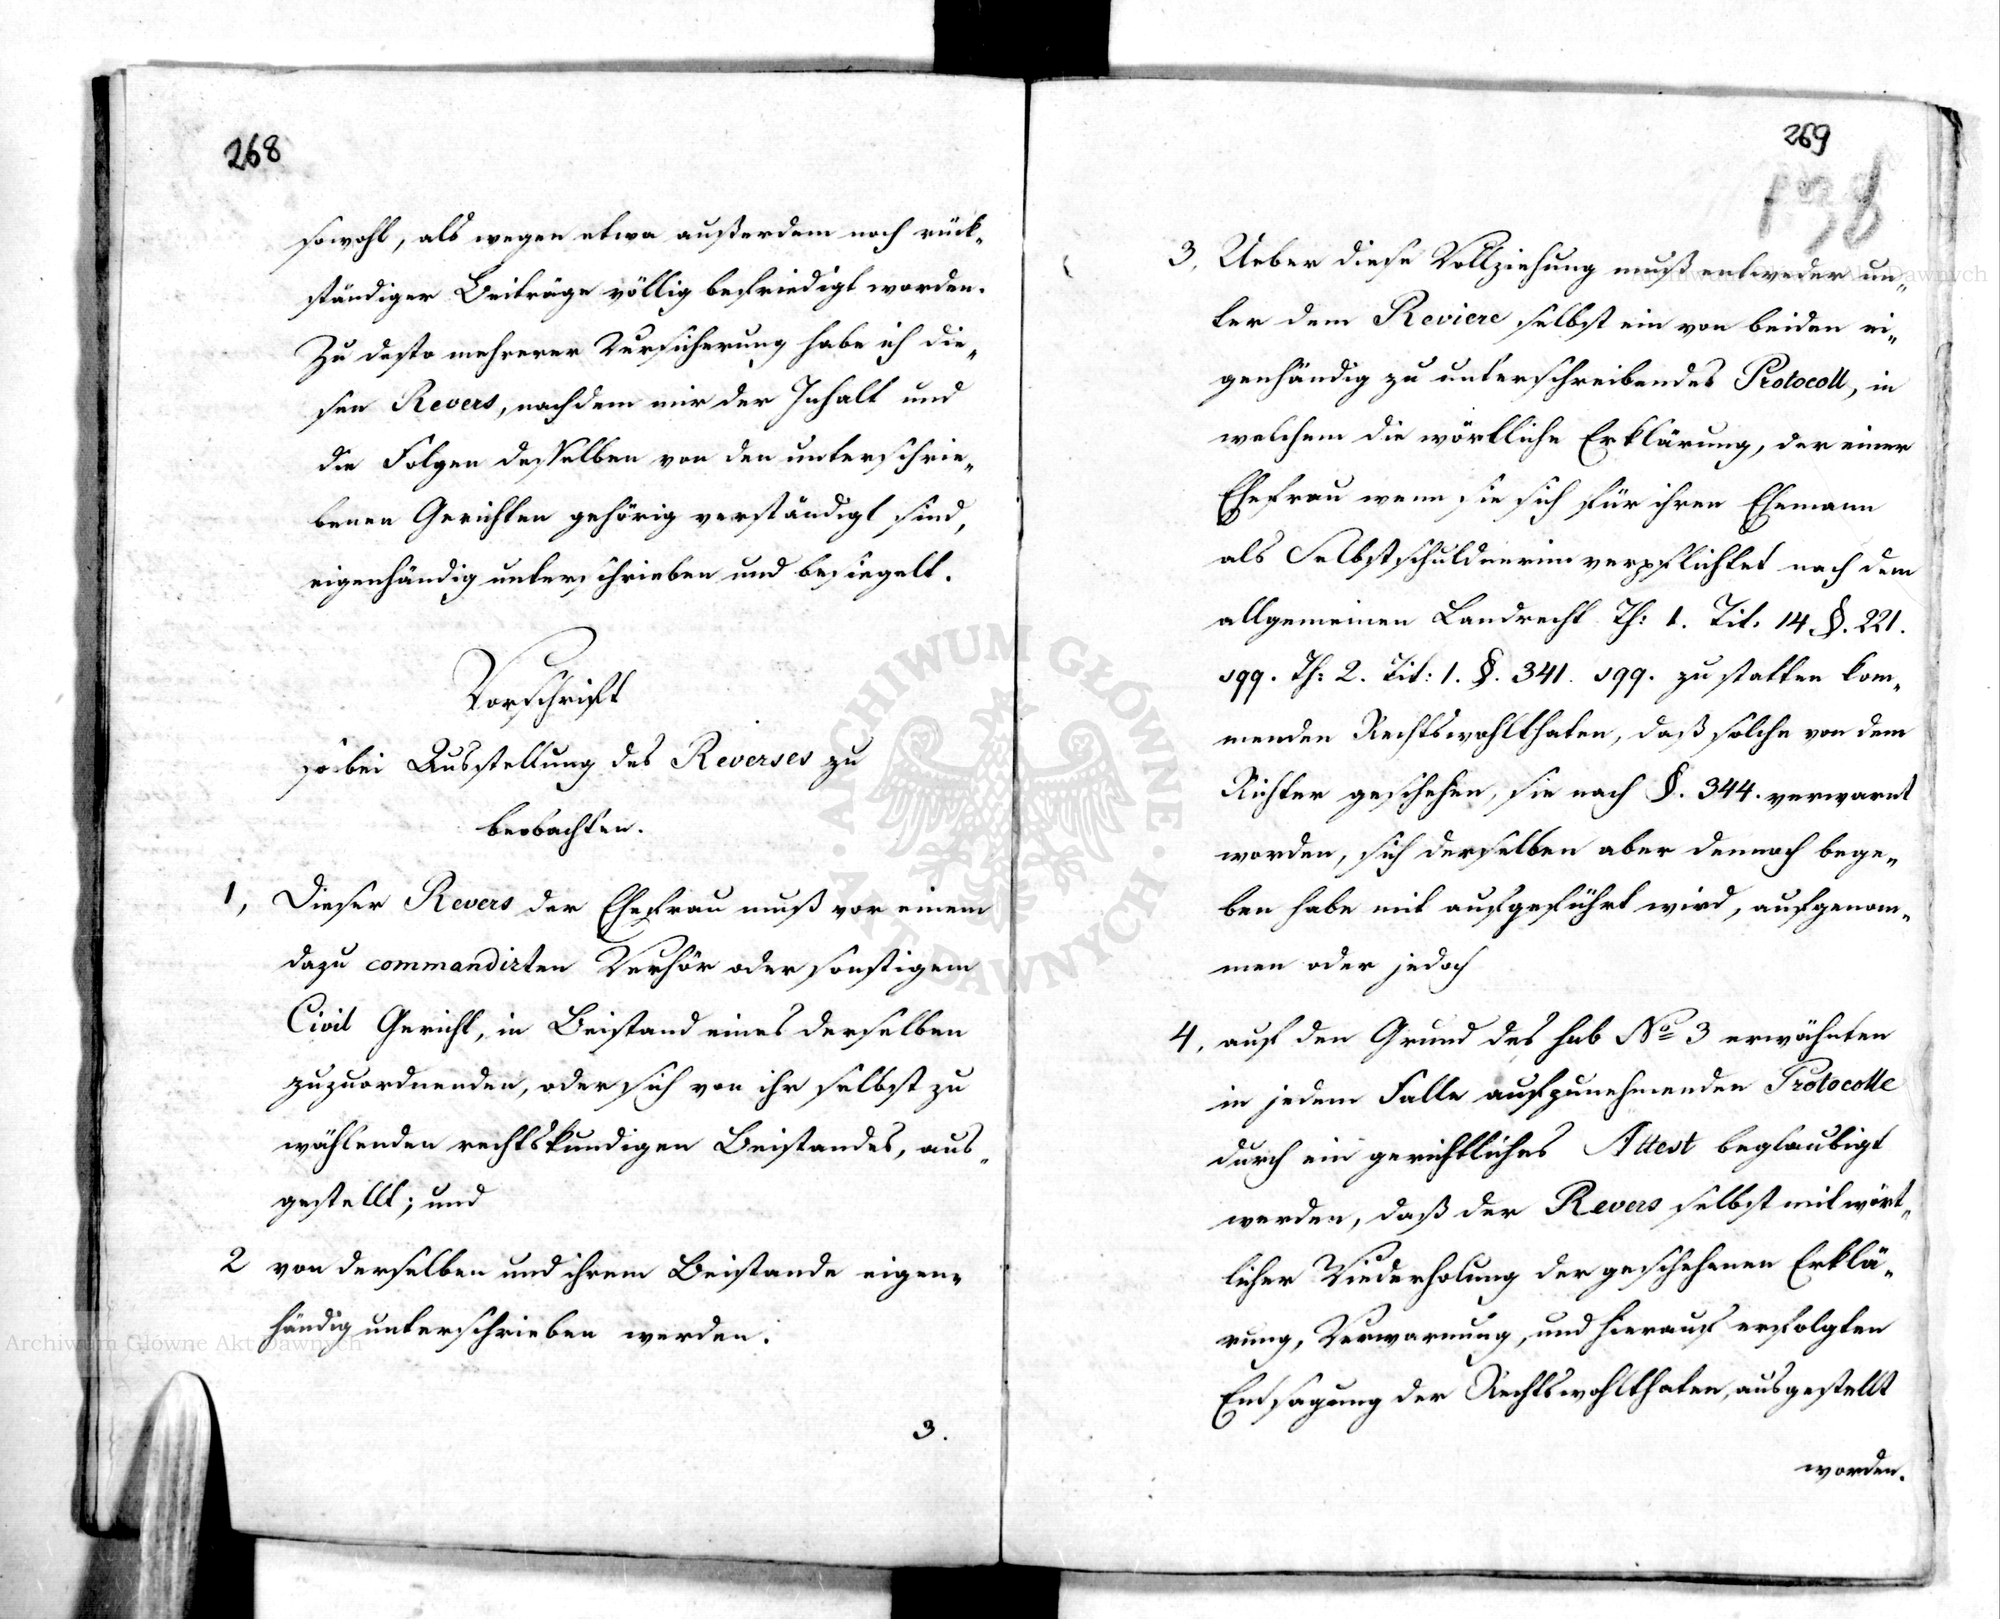 268
sowohl, als wegen etwa außerdem noch rück-
ständiger Beiträge völlig befriedigt worden.
Zu desto mehrerer Versicherung habe ich die-
sen Revers, nachdem mir der Inhalt und
die Folgen desselben von den unterschrie-
benen Gerichten gehörig verständigt sind,
eigenhändig unterschrieben und besiegelt.
Vorschrift
so bei Ausstellung des Reverses zu
beobachten.
1, Dieser Revers der Ehefrau muß vor einem
dazu commandirten Verhör oder sonstigem
Civil Gericht, in Beistand eines derselben
zuzuordnenden, oder sich von ihr selbst zu
wählenden rechtskundigen Beistandes, aus-
gestellt; und
2 von derselben und ihrem Beistande eigen-
händig unterschrieben werden.
3.
269
138
3, Ueber diese Vollziehung muß entweder un-
ter dem Reviere selbst ein von beiden ei-
genhändig zu unterschreibendes Protocoll, in
welchem die wörtliche Erklärung, der einer
Ehefrau wenn sie sich für ihren Ehemann
als Selbstschuldnerinn verpflichtet nach dem
allgemeinen Landrecht Th: 1. Tit. 14 §. 221.
sqq. Th: 2. Tit: 1. §. 341. sqq. zu statten kom-
menden Rechtswohlthaten, daß solche von dem
Richter geschehen, sie nach §. 344. verwarnt
worden, sich derselben aber dennoch bege-
ben habe mit aufgeführt wird, aufgenom-
men oder jedoch
4, auf den Grund des sub No 3 erwähnten
in jedem Falle aufzunehmenden Protocolle
durch ein gerichtliches Attest beglaubigt
werden, daß der Revers selbst mit wört-
licher Wiederholung der geschehenen Erklä-
rung, Verwarnung, und hierauf erfolgten
Entsagung der Rechtswohlthaten, ausgestellt
worden.
ARCHIWUM GŁÓWNE AKT DAWNYCH
Archiwum Główne Akt Dawnych
Archiwum Główne Akt Dawnych